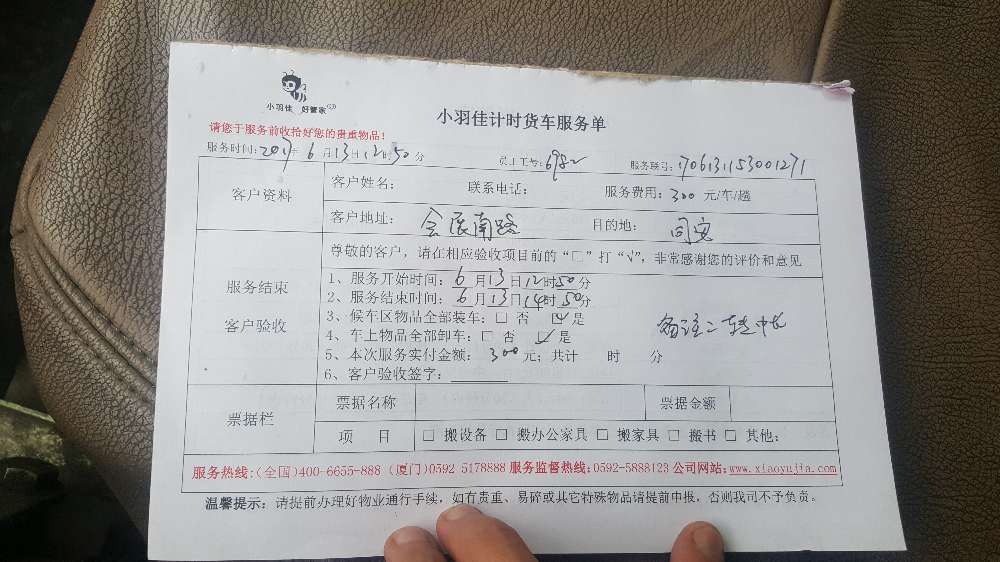 小羽佳 好管家
小羽佳计时货车服务单
请您于服务前收拾好您的贵重物品！
服务时间：2017年 6月13日12时50分 员工工号：6982 服务联引：1706131153001271
客户资料 客户姓名： 联系电话： 服务费用：300 元/车/趟
客户地址： 会展南路 目的地： 同安
尊敬的客户，请在相应验收项目前的“□”打“√”，非常感谢您的评价和意见
服务结束
客户验收
1、服务开始时间：6月13日12时50分
2、服务结束时间：6月13日14时50分
3、候车区物品全部装车：□ 否 ☑是
4、车上物品全部卸车：□ 否 ☑是
备注：转中长
5、本次服务实付金额： 300 元；共计 时 分
6、客户验收签字：
票据栏 票据名称 票据金额
项 目 □ 搬设备 □ 搬办公家具 □ 搬家具 □ 搬书 □ 其他：
服务热线：(全国)400-6655-888 (厦门)0592 5178888 服务监督热线：0592-5888123 公司网站：www.xiaoyujia.com
温馨提示：请提前办理好物业通行手续，如有贵重、易碎或其它特殊物品请提前申报，否则我司不予负责。